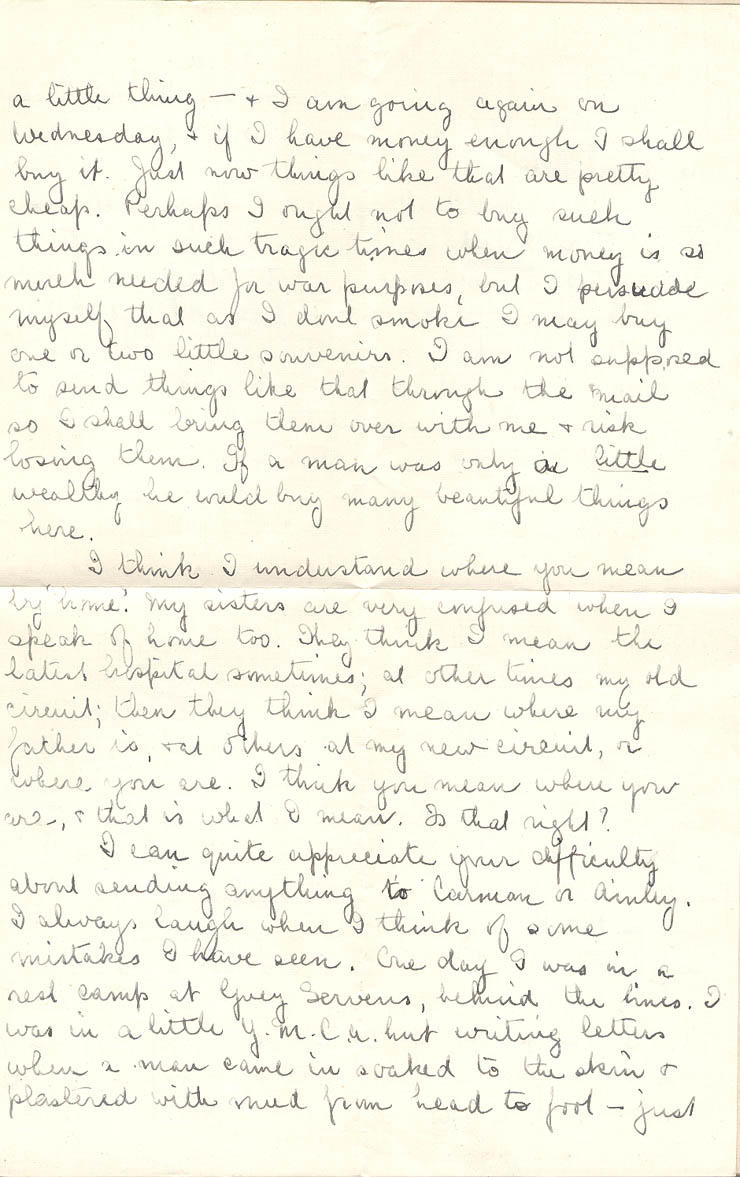 a little thing — & I am going again on
Wednesday, & if I have money enough I shall
buy it. Just now things like that are pretty
cheap. Perhaps I ought not to buy such
things in such tragic times when money is so
much needed for war purposes, but I persuade
myself that as I dont smoke I may buy
one or two little souvenirs. I am not supposed
to send things like that through the mail
so I shall bring them over with me & risk
losing them. If a man was only a little
wealthy he would buy many beautiful things
here.
I think I understand where you mean
by 'home'. My sisters are very confused when I
speak of home too. They think I mean the
latest hospital sometimes; at other times my old
circuit; then they think I mean where my
father is, & at others at my new circuit, or
where you are. I think you mean where your
are, & that is what I mean. Is that right?
I can quite appreciate your difficulty
about sending anything to Carman or Ainley.
I always laugh when I think of some
mistakes I have seen. One day I was in a
rest camp at Gouy Servens, behind the lines. I
was in a little Y.M.C.A. hut writing letters
when a man came in soaked to the skin &
plastered with mud from head to foot — just